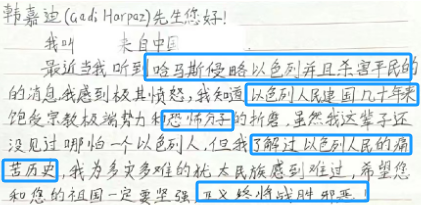 韩嘉迪(Gadi Harpaz)先生您好!
我叫 来自中国
最近当我听到哈马斯侵略以色列并且杀害平民的
的消息我感到极其愤怒,我知道以色列人民建国几十年来
饱受宗教极端势力和恐怖分子的折磨,虽然我这辈子还
没见过哪怕一个以色列人,但我了解过以色列人民的痛
苦历史,我为多灾多难的犹太民族感到难过,希望您
和您的祖国一定要坚强,正义终将战胜邪恶!